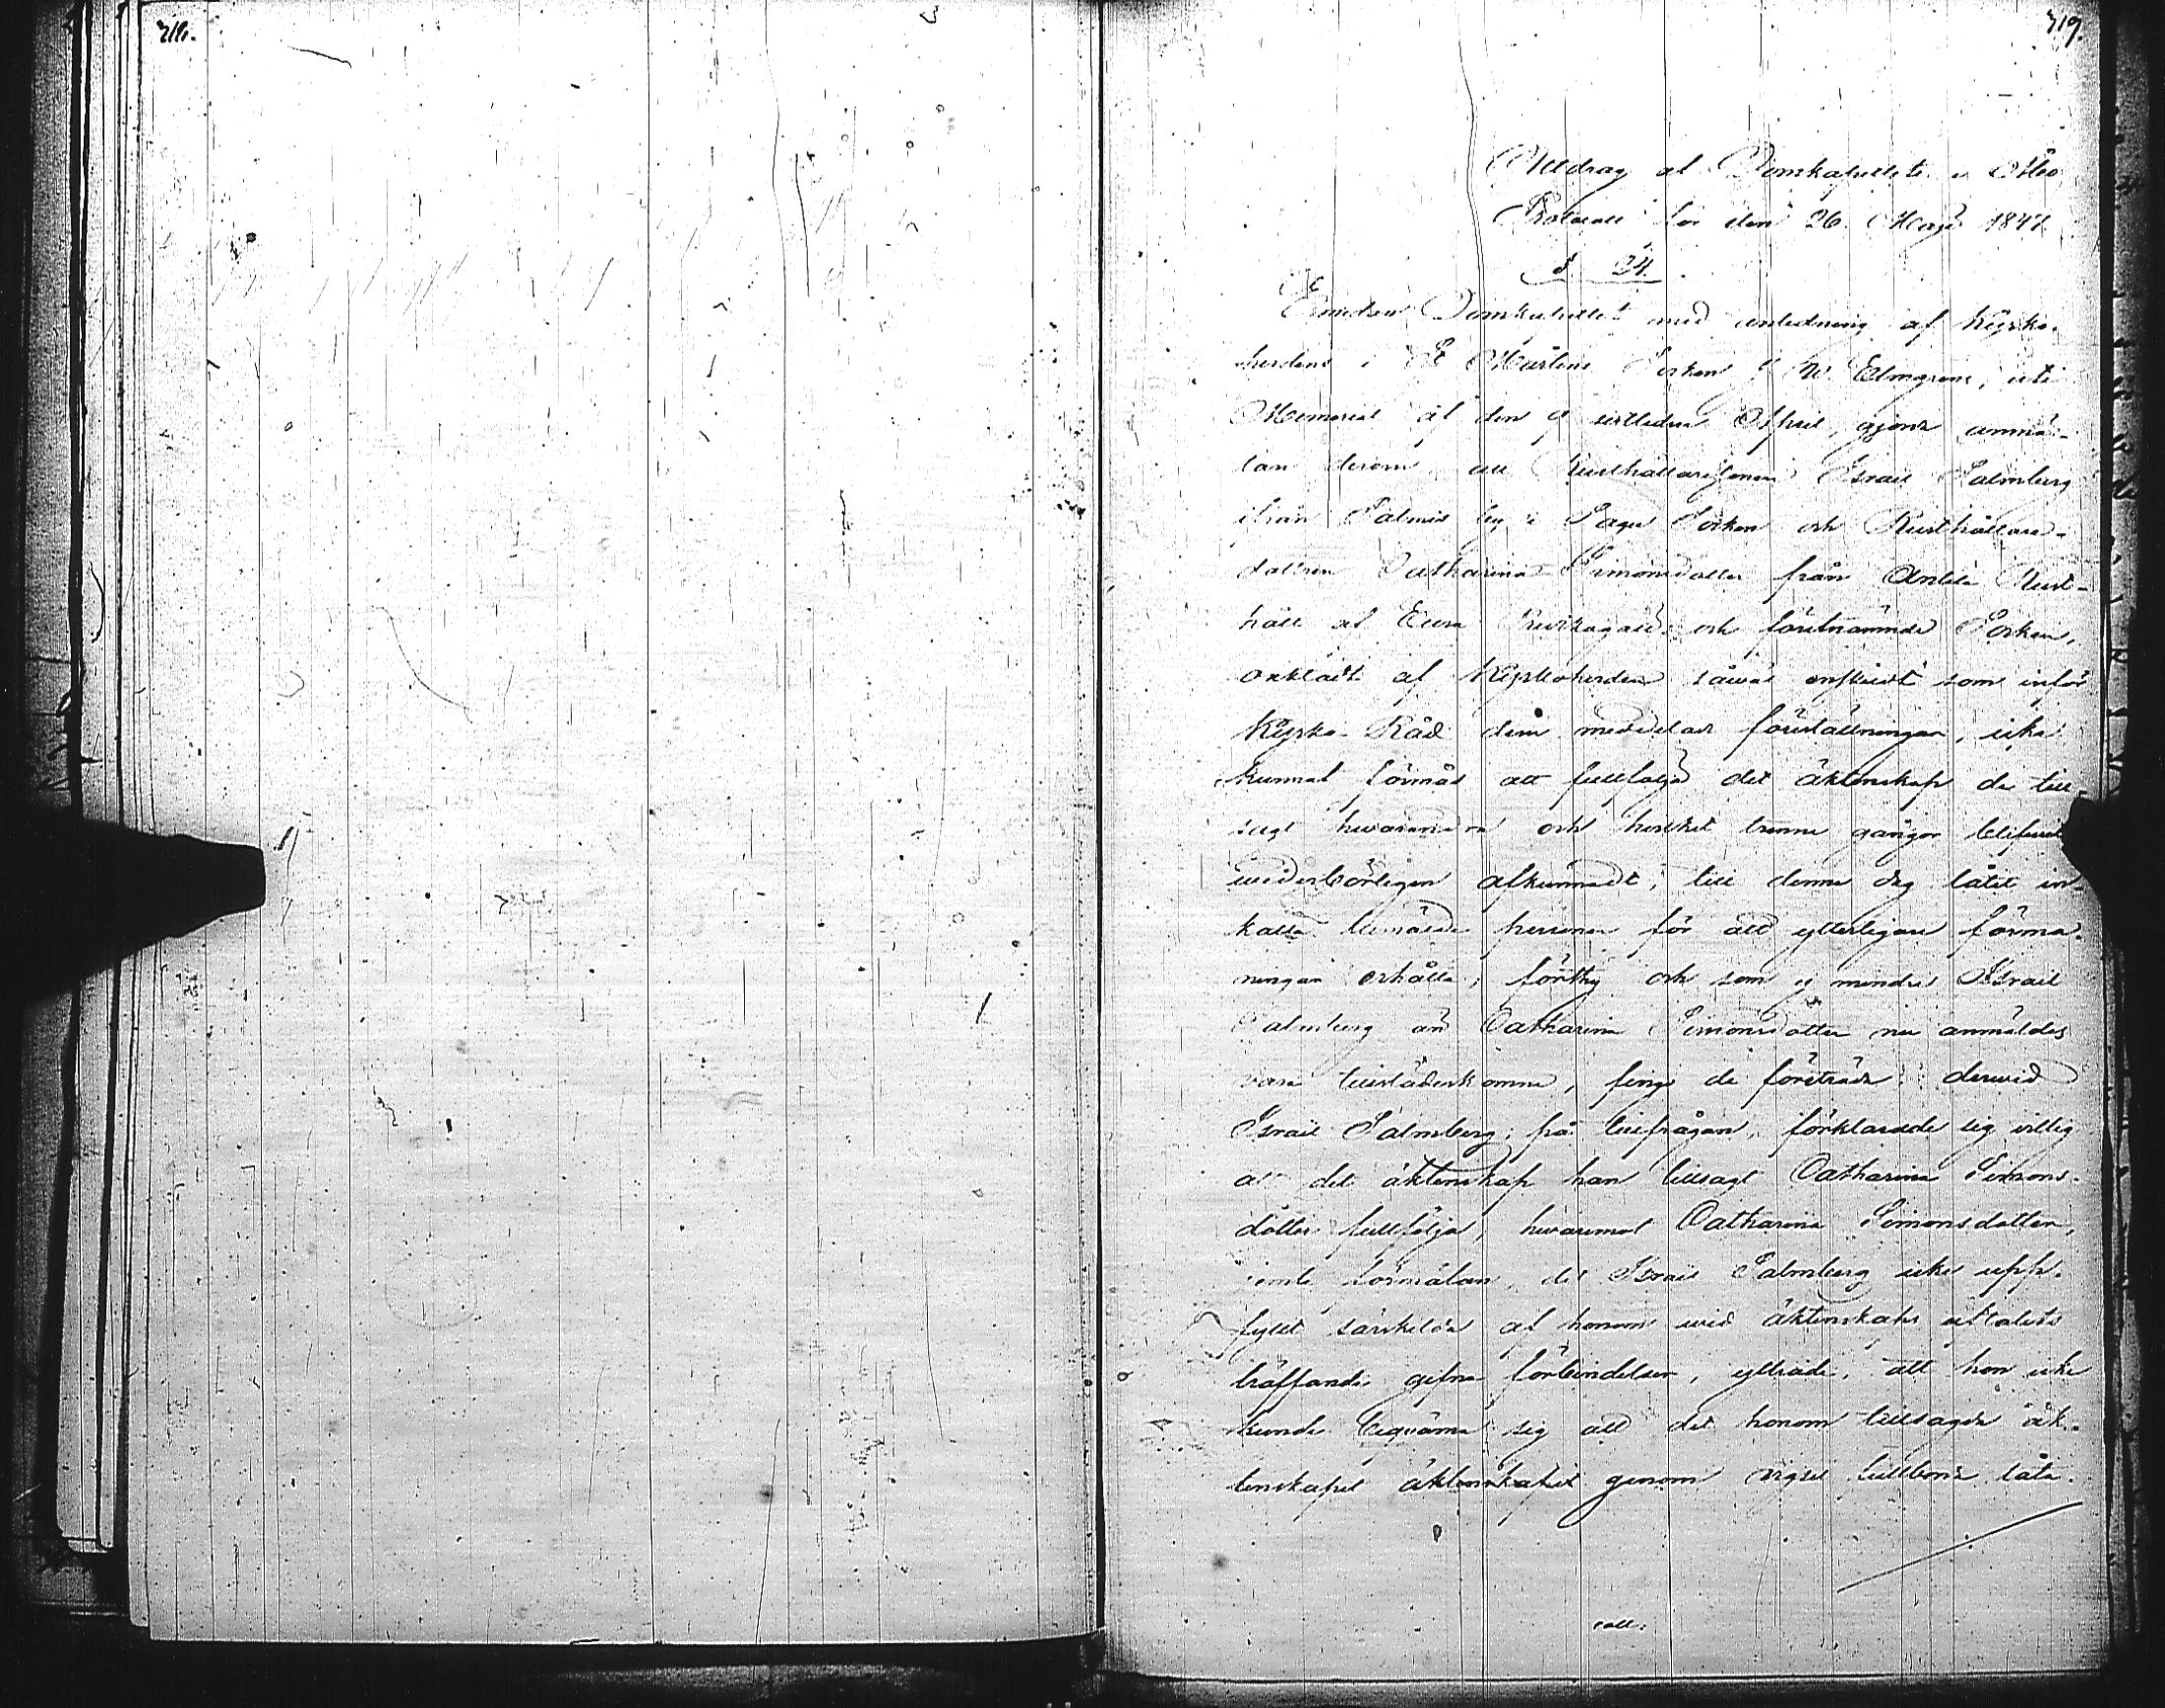 318.
319.
Utdrag af Domkapitlets i Åbo
Protocoll för den 26 Maji 1847.
§ 24.
Emedan Domkapitlet med anledning af Kyrko-
herdens i St Mårtens Socken Elmgrens, uti
Memorial af den 9 sistledne April, gjorda anmä-
lan derom, att Rusthållaresonen Israel Salmberg
ifrån Salmis by i Sagu Socken och Rusthållare-
dottren Catharina Simonsdotter från Anteli Rust-
håll af Eura och förstnämnde Socken,
oaktadt af Kyrkoherden såväl enskildt som inför
Kyrko-Råd dem meddelade föreställningar, icke
kunnat förmås att fullfölja det äktenskap de till-
sagt hvarandra och hvilket trenne gångor blifvit
wederbörligen afkunnadt, till denna dag låtit in-
kalla bemälde personer för att ytterligare förma-
ningar erhålla; förthy och som ej mindre Israel
Salmberg än Catharina Simonsdotter nu anmäldes
vara tillstädeskomne, fingo de företräda: derwid
Israel Salmberg, på tillfrågan, förklarade sig villig
att det äktenskap han tillsagt Catharina Simons-
dotter fullfölja, hwaremot Catharina Simonsdotter,
förmälan, det Israel Salmberg icke upp-
fyllt särskilda af honom wid äktenskaps aftalets
träffande gifna förbindelser, yttrade, att hon icke
kunde beqväma sig att det honom tillsagda äk-
tenskapet äktenskapet genom vigsel fullborda låta.